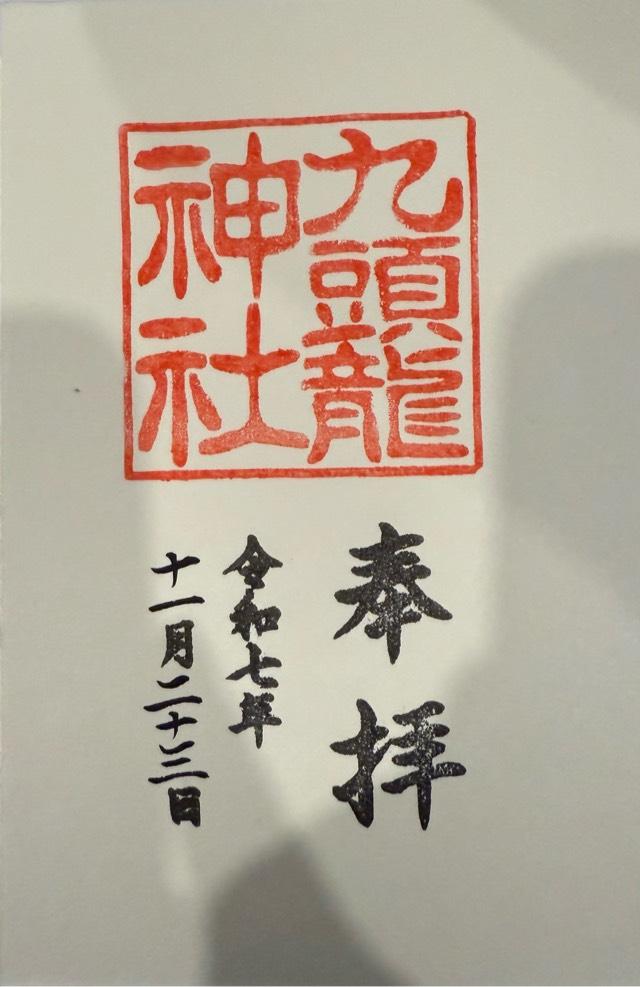 九頭龍
神社
奉拝
令和七年
十一月二十三日